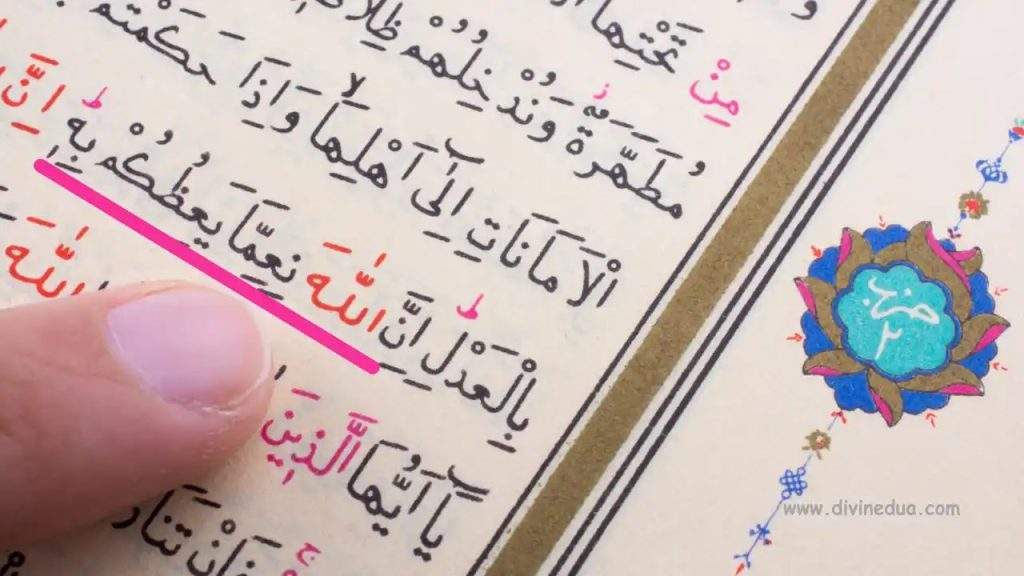 مِنْ تَحْتِهَا
مُطَهَّرَةٌۘ وَنُدْخِلُهُمْ
الْاَمَانَاتِ اِلٰٓى اَهْلِهَاۙ وَاِذَا حَكَمْتُمْ
بِالْعَدْلِۜ اِنَّ اللّٰهَ نِعِمَّا يَعِظُكُمْ بِه۪ۜ اِنَّ
يَٓا اَيُّهَا الَّذ۪ينَ اللّٰهَ
فَاِنْ
حزب
٢
www.divinedua.com